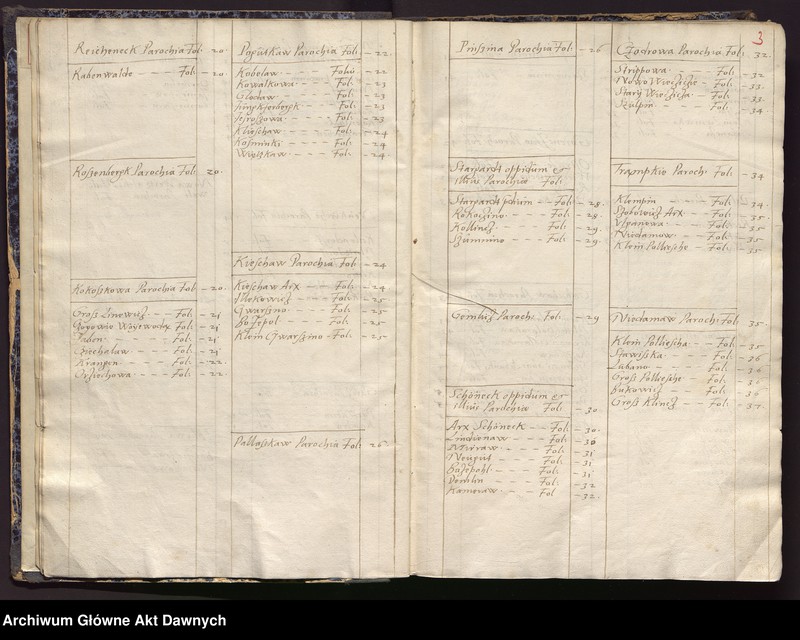 Reicheneck Parochia Fol: 20.
Rabenwalde - - - Fol: - 20.
Rosenbergk Parochia Fol: 20.
Kokoskowa Parochia Fol: - 20.
Groß Linewiz - Fol: - 21
Gorowio Woyewodze Fol: - 21
Fol: - 21
Ciecholaw - - Fol: - 21
Krangen - - - Fol: - 22
Grziechowa - - - Fol: - 22
Poputkaw Parochia Fol: - 22
Kobelaw - - - Folio - 22
Kowalkowa - - Fol: - 23
Glodaw - - - Fol: - 23
Fol: - 23
Jeroszowa - - Fol: - 23
Klieschaw - - Fol: - 24
Kosminki - - - Fol: - 24
Fol: - 24
Kieschaw Parochia Fol: - 24
Kieschaw Arx - - Fol: - 24
Fol: - 25
Gwarzno - - - Fol: - 25
Bożepol - - - Fol: - 25
Klein Gwarszino - Fol: - 25
Palbaskaw Parochia Fol: - 26
3
Prussina Parochia Fol: - 26
Stargardt oppidum et
illius Parochia Fol:
Stargardt pdium - - Fol: - 28.
Kokoczino - - - Fol: - 28.
Kollincz - - - Fol: - 29.
Szumnino - - - Fol: - 29.
Gemliz Paroch: - Fol: - 29
Schöneck oppidum et
illius Parochia Fol: - 30
Arx Schöneck - - Fol: - 30.
Lindienaw - - - Fol: - 30
Mirraw - - - Fol: - 31
Neugut - - - Fol: - 31
Bożepohl - - - Fol: - 31
Demblin - - - Fol: - 32
Kameraw - - - Fol - 32.
Czochowa Parochia Fol: - 32.
Strippowa - - - Fol: - 32
Nowo Wieczicze - Fol: - 33.
Stary Wieczicza - Fol: - 33.
Szulpin - - - Fol: - 34.
Trampkio Paroch: Fol: - 34
Klempin - - - Fol: - 34.
Szobowiz Arx - - Fol: - 35.
Uspanowa - - Fol: - 35
Niedamow - - Fol: - 35
Klein Pollesche - Fol: - 35
Niedamaw Paroch: Fol: 35.
Klein Polliescha - Fol: - 35
Stawiska - - - Fol: - 36
Lubano - - - Fol: - 36
Groß Polliesche - Fol: - 36
Bukowiz - - - Fol: - 36
Groß Klincz - - Fol: - 37.
Archiwum Główne Akt Dawnych